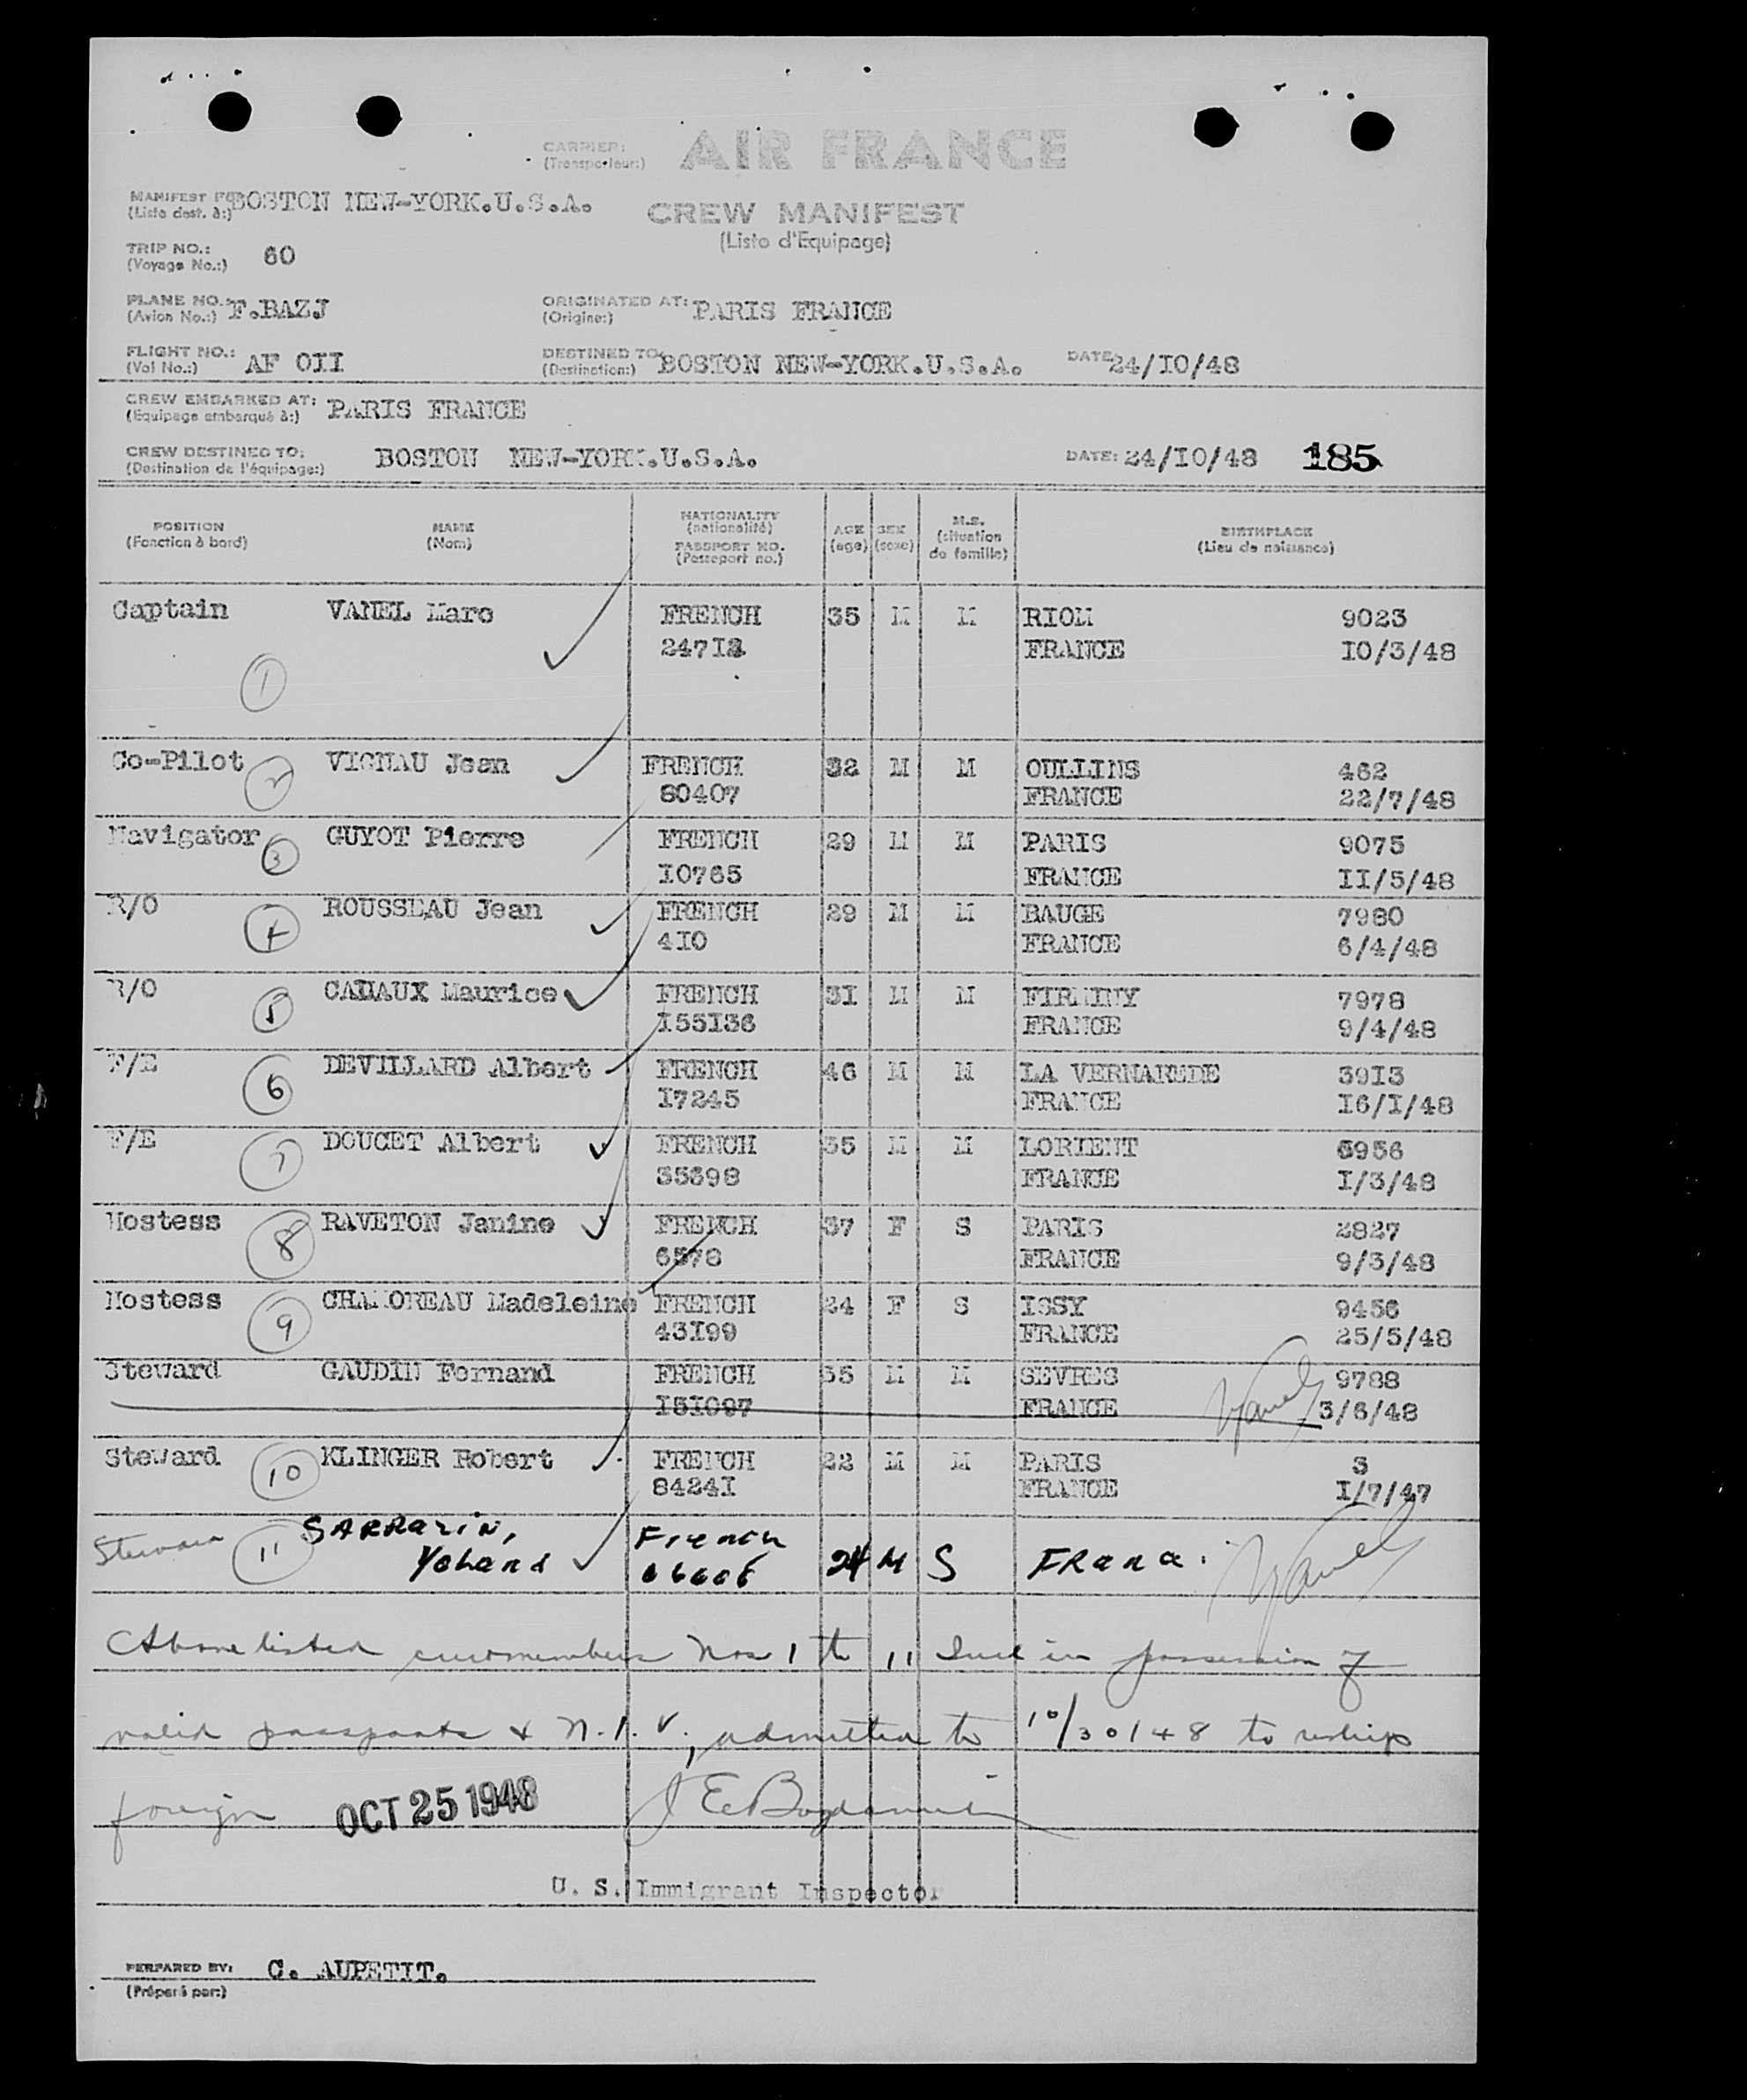 CARRIER: AIR FRANCE
(Transporteur:)
MANIFEST FOR BOSTON NEW-YORK.U.S.A.
(Liste dest. à:)
CREW MANIFEST
(Liste d'Equipage)
TRIP NO.: 60
(Voyage No.:)
PLANE NO.: F.BAZJ
(Avion No.:)
ORIGINATED AT: PARIS FRANCE
(Origine:)
FLIGHT NO.: AF OII
(Vol No.:)
DESTINED TO: BOSTON NEW-YORK.U.S.A. DATE 24/IO/48
(Destination:)
CREW EMBARKED AT: PARIS FRANCE
(Equipage embarqué à:)
CREW DESTINED TO: BOSTON NEW-YORK.U.S.A. DATE: 24/IO/48 185
(Destination de l'équipage:)
POSITION NAME NATIONALITY AGE SEX M.S. BIRTHPLACE
(Fonction à bord) (Nom) (nationalité) (age) (sexe) (situation de famille) (Lieu de naissance)
PASSPORT NO.
(Passeport no.)
Captain VANEL Marc FRENCH 35 M M RIOM 9023
FRANCE IO/3/48
1
Co-Pilot 2 VIGNAU Jean FRENCH 32 M M OULLINS 462
80407 FRANCE 22/7/48
Navigator 3 GUYOT Pierre FRENCH 29 M M PARIS 9075
I0765 FRANCE II/5/48
R/O 4 ROUSSEAU Jean FRENCH 29 M M BAUGE 7980
4IO FRANCE 6/4/48
R/O 5 CAMAUX Maurice FRENCH 3I M M FIRMINY 7978
I55I36 FRANCE 9/4/48
F/E 6 DEVILLARD Albert FRENCH 46 M M LA VERNAREDE 39I3
I7245 FRANCE I6/I/48
F/E 7 DOUCET Albert FRENCH 35 M M LORIENT 6956
35698 FRANCE I/3/48
Hostess 8 RAVETON Janine FRENCH 37 F S PARIS 2827
6578 FRANCE 9/3/48
Hostess 9 CHAMOREAU Madeleine FRENCH 24 F S ISSY 9456
43I99 FRANCE 25/5/48
Steward GAUDIN Fernand FRENCH 35 M M SEVRES 9788
I5I097 FRANCE 3/6/48
Vanel
Steward 10 KLINGER Robert FRENCH 22 M M PARIS 3
8424I FRANCE I/7/47
Steward 11 SARRAZIN, French 24 M S FRANCE.
Yohand
Vanel
Above listed crewmembers Nos 1 to 11 Incl in possession of
valid passports & N.I.V., admitted to 10/30/48 to reship
foreign OCT 25 1948
U. S. Immigrant Inspector
PERPARED BY: C. AUPETIT.
(Préparé par:)